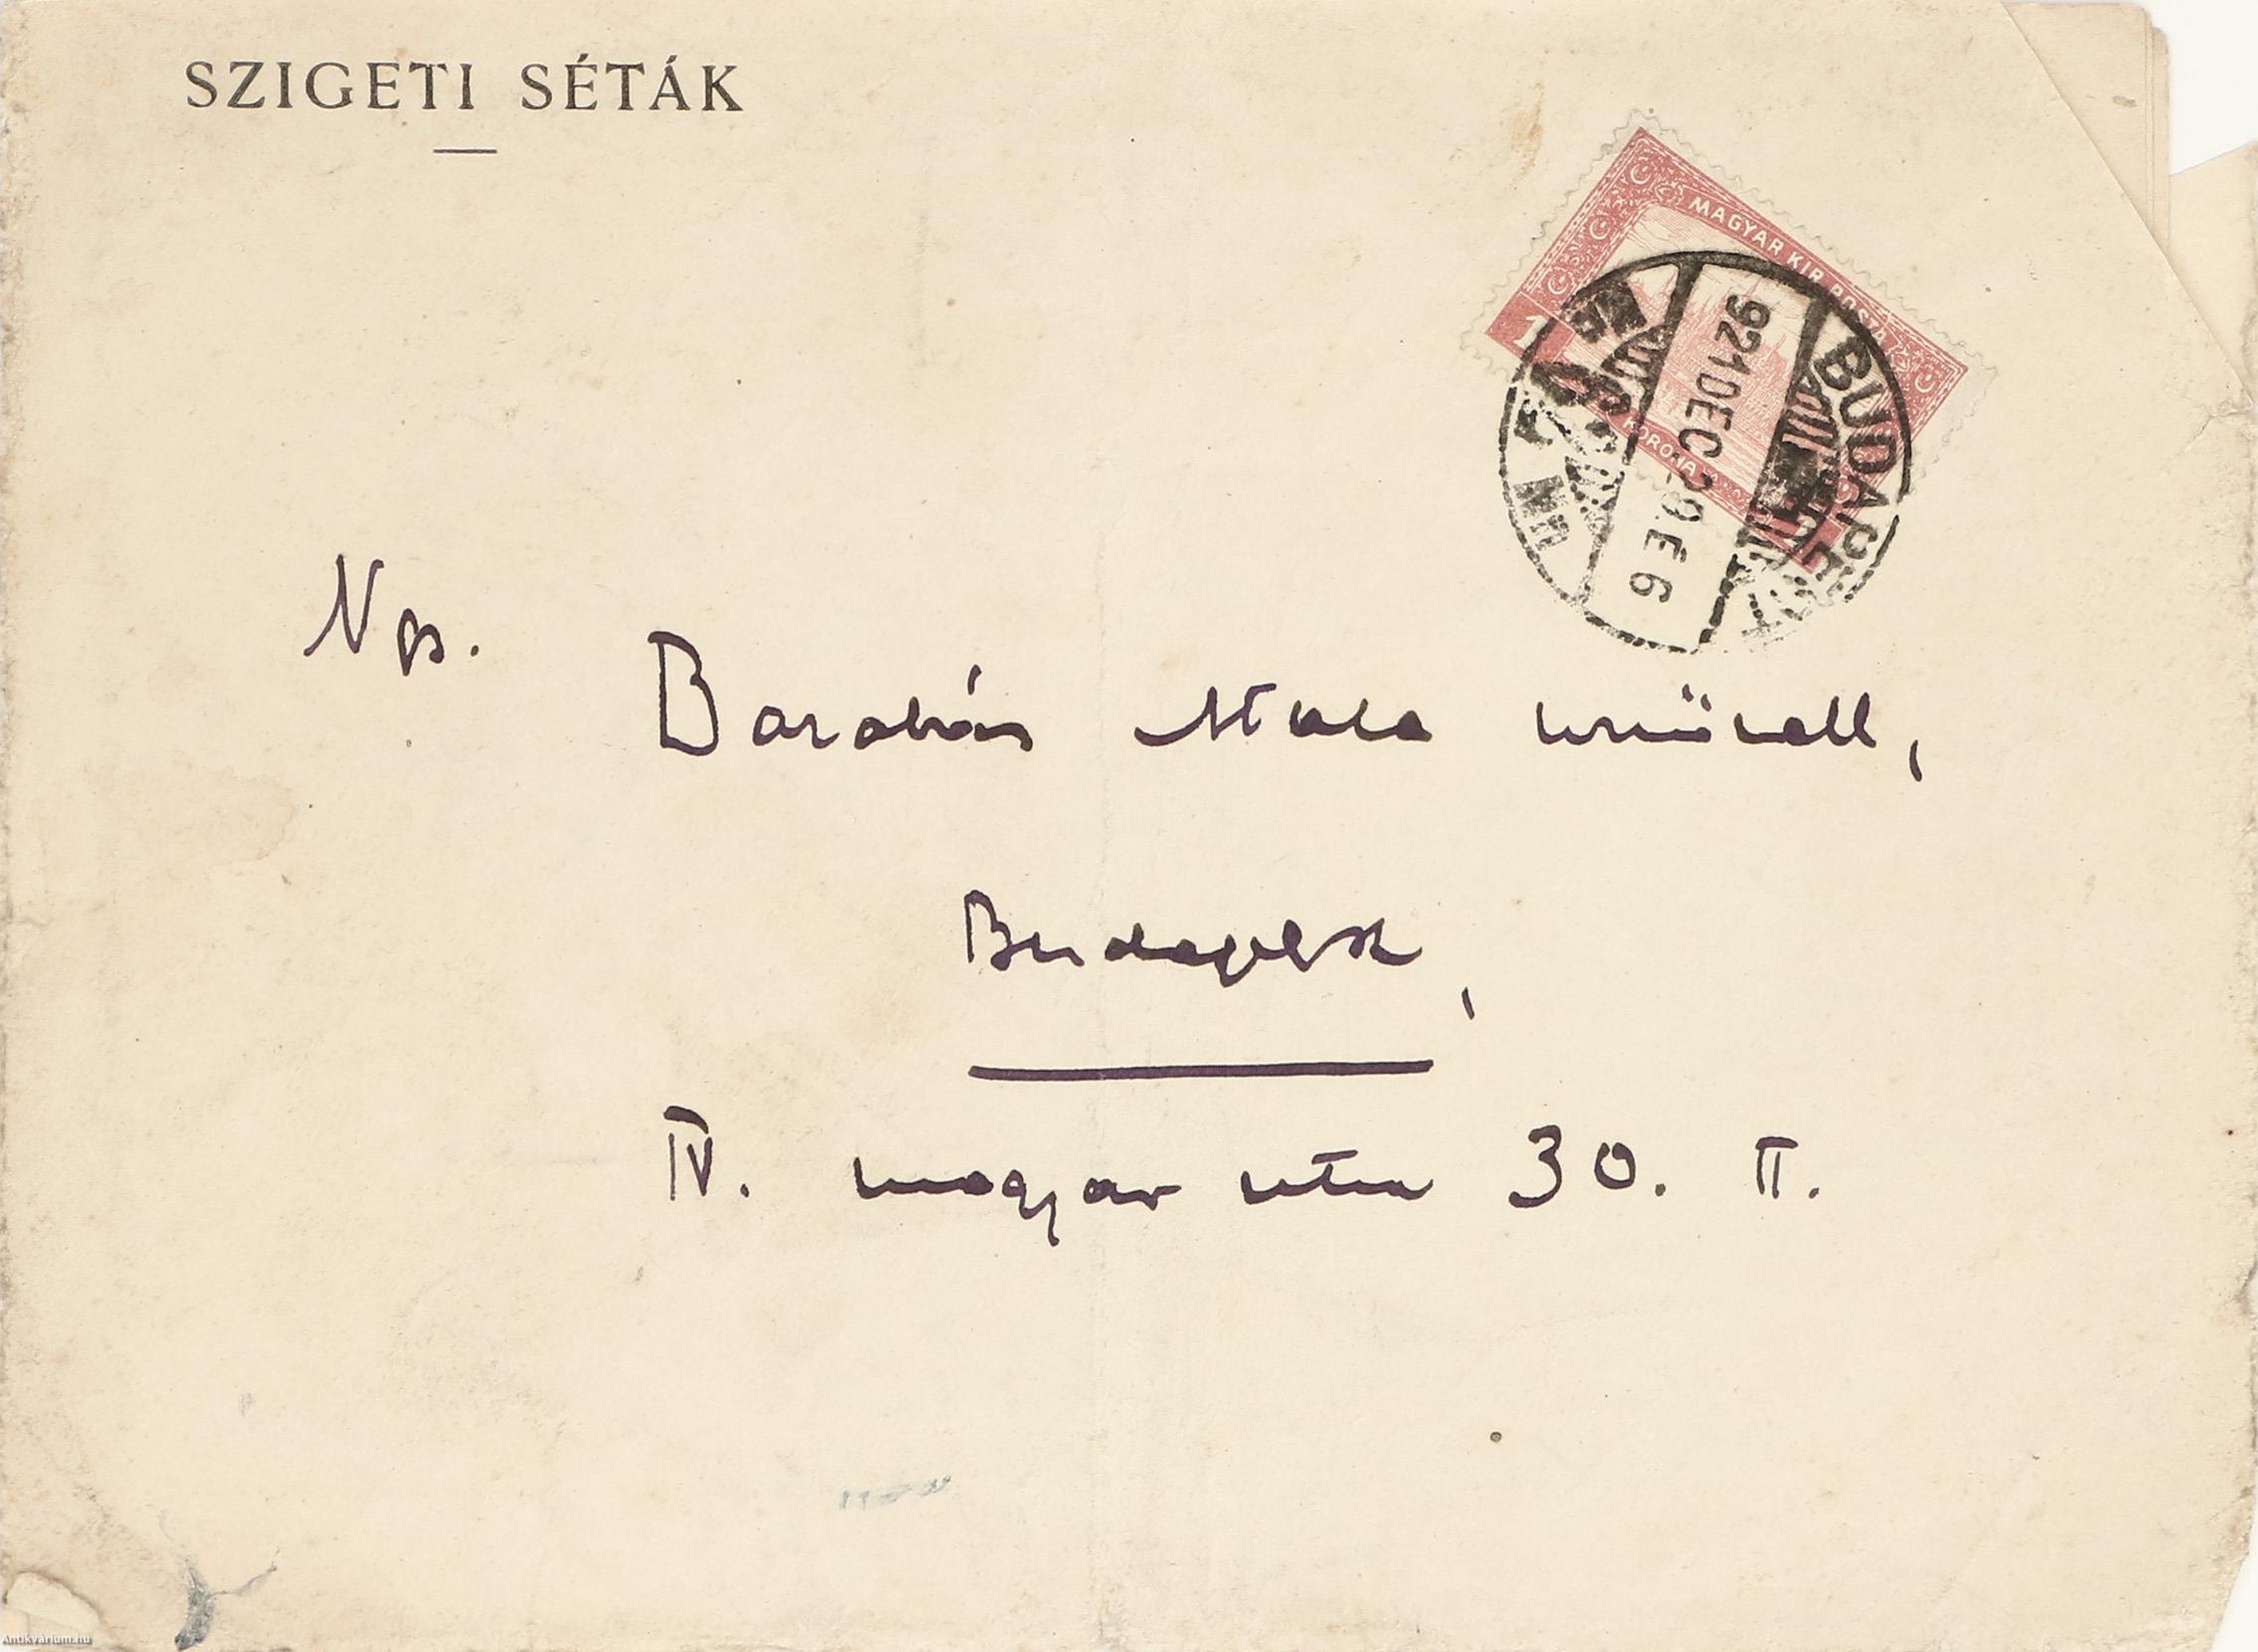 SZIGETI SÉTÁK
MAGYAR KIR. POSTA
1 KORONA
BUDAPEST
921 DEC 29. E 6
Ngs.
Barabás Mala úrnőnek,
Budapest,
IV. magyar utca 30. II.
Antikvarium.hu